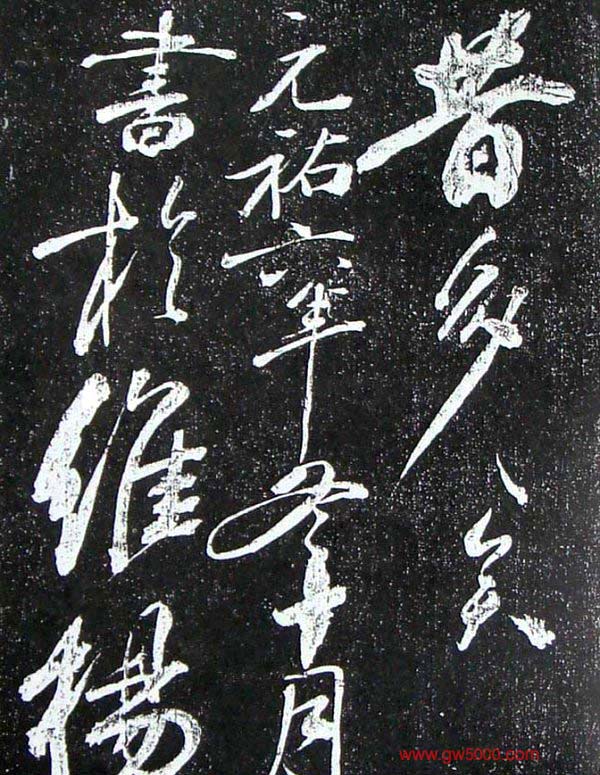 昔多矣
元祐六年冬十月
書於維楊
www.gw5000.com